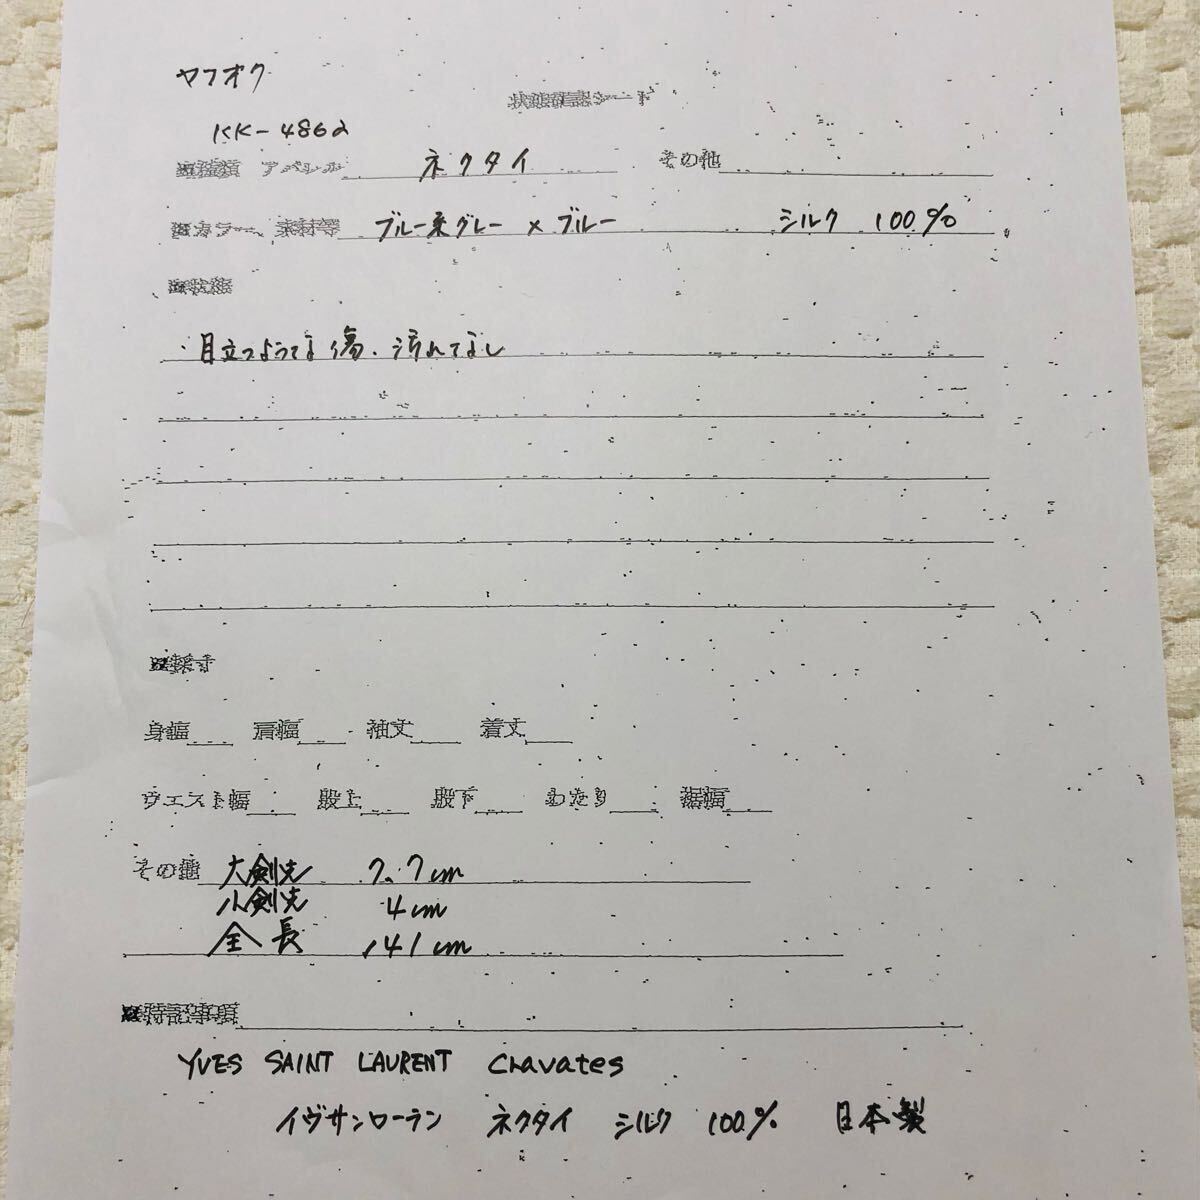 ヤフオク
状態確認シート
KK-4862
アパレル ネクタイ その他
カラー、素材等 ブルー系グレー × ブルー シルク 100%
■状態
・目立つような傷、汚れてなし
■採寸
身幅 肩幅 袖丈 着丈
ウエスト幅 股上 股下 わたり 裾幅
その他 大剣先 7.7cm
小剣先 4cm
全長 141cm
■特記事項
YVES SAINT LAURENT Cravates
イヴサンローラン ネクタイ シルク 100% 日本製